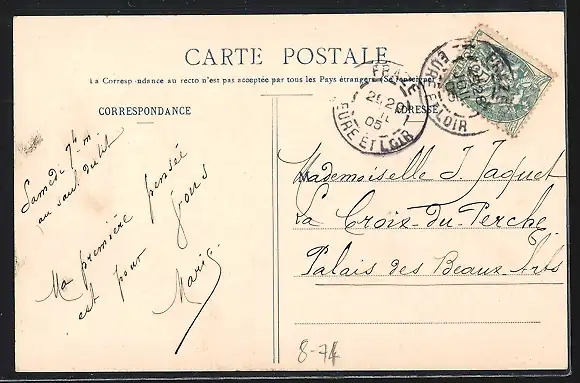 CARTE POSTALE
La Correspondance au recto n'est pas acceptée par tous les Pays étrangers (Se renseigner
CORRESPONDANCE
ADRESSE
Samedi 7h m.
au saut du lit
Ma première pensée
est pour vous
Marie
Mademoiselle J. Jaquet
La Croix-du-Perche
Palais des Beaux Arts
EURE ET LOIR
05
EURE ET LOIR
8-74